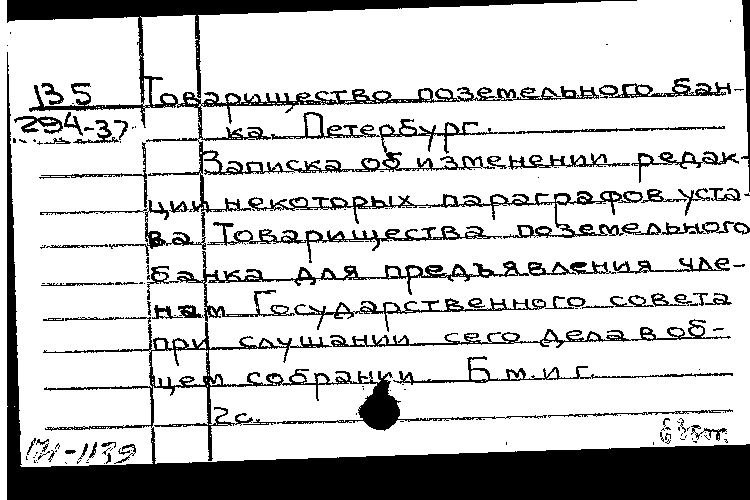 135
294-37
Товарищество поземельного бан-
ка. Петербург.
Записка об изменении редак-
ции некоторых параграфов уста-
ва Товарищества поземельного
банка для предъявления чле-
нам Государственного совета
при слушании сего дела в об-
щем собрании Б.м.и г.
2с.